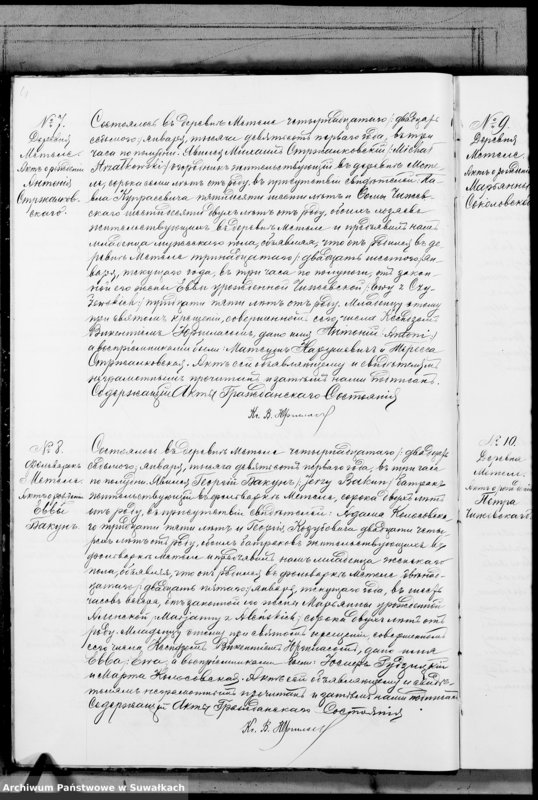 4
№ 7.
Деревня
Метеле.
Актъ о рожденіи
Антонія
Стржалков-
скаго.
Состоялось въ деревнѣ Метеле четырнадцатаго/двадцать
седьмого/ Января, тысяча девятьсотъ перваго года, въ три
часа по полудни. Явился Михаилъ Стржалковскій /Michał
Strzałkowski/ жительствующій въ деревнѣ Мете-
ле, сорока семи лѣтъ отъ роду, въ присутствіи свидѣтелей: Ка-
пятидесяти шести лѣтъ и Чижев-
скаго шестидесяти двухъ лѣтъ отъ роду, обоихъ
жительствующихъ въ деревнѣ Метеле и предъявилъ намъ
младенца мужескаго пола, объявляя, что онъ родился въ де-
ревнѣ Метеле тринадцатаго/двадцать шестого/ Ян-
варя, текущаго года, въ три часа по полуночи, отъ закон-
ной его жены Евы урожденной Чижевской /Ewy z Czy-
żewskich/ тридцати пяти лѣтъ отъ роду. Младенцу этому
при святомъ крещеніи, совершенномъ сего числа Ксендзомъ
Викентіемъ дано имя Антоній /Antoni/
а воспріемниками были: Матеушъ и Тересса
Стржалковская. Актъ сей объявляющему и свидѣтелямъ
неграмотнымъ прочитанъ и затѣмъ нами подписанъ.
Содержащій Акты Гражданскаго Состоянія
Кс. В.
№ 8.
Фольваркъ
Метеле.
Актъ о рожденіи
Еввы
Бакунъ.
Состоялось въ деревнѣ Метеле четырнадцатаго/двадцать
седьмого/ Января, тысяча девятьсотъ перваго года, въ три часа
по полудни. Явился Георгій Бакунъ /Jerzy Bakun/ батракъ
жительствующій въ фольваркѣ Метеле, сорока лѣтъ
отъ роду, въ присутствіи свидѣтелей: Адама Колосовска-
го тридцати пяти лѣтъ и Георгія двадцати четы-
рехъ лѣтъ отъ роду, обоихъ батраковъ жительствующихъ въ
фольваркѣ Метеле и предъявилъ намъ младенца женскаго
пола, объявляя, что онъ родился въ фольваркѣ Метеле двѣнад-
цатаго/двадцать пятаго/ Января, текущаго года, въ шесть
часовъ вечера, отъ законной его жены Марьянны урожденной
сорока двухъ лѣтъ отъ
роду. Младенцу этому при святомъ крещеніи, совершенномъ
сего числа Ксендзомъ Викентіемъ дано имя
Евва /Ewa/, а воспріемниками были: Іосифъ
и Марта Колосовская. Актъ сей объявляющему и свидѣ-
телямъ неграмотнымъ прочитанъ и затѣмъ нами подписанъ
Содержащій Акты Гражданскаго Состоянія
Кс. В.
№ 9.
Деревня
Метеле.
Актъ о рожденіи
Марьянны
Соколовской
№ 10.
Деревня
Метеле.
Актъ о рожденіи
Петра
Чижевскаго.
Archiwum Państwowe w Suwałkach